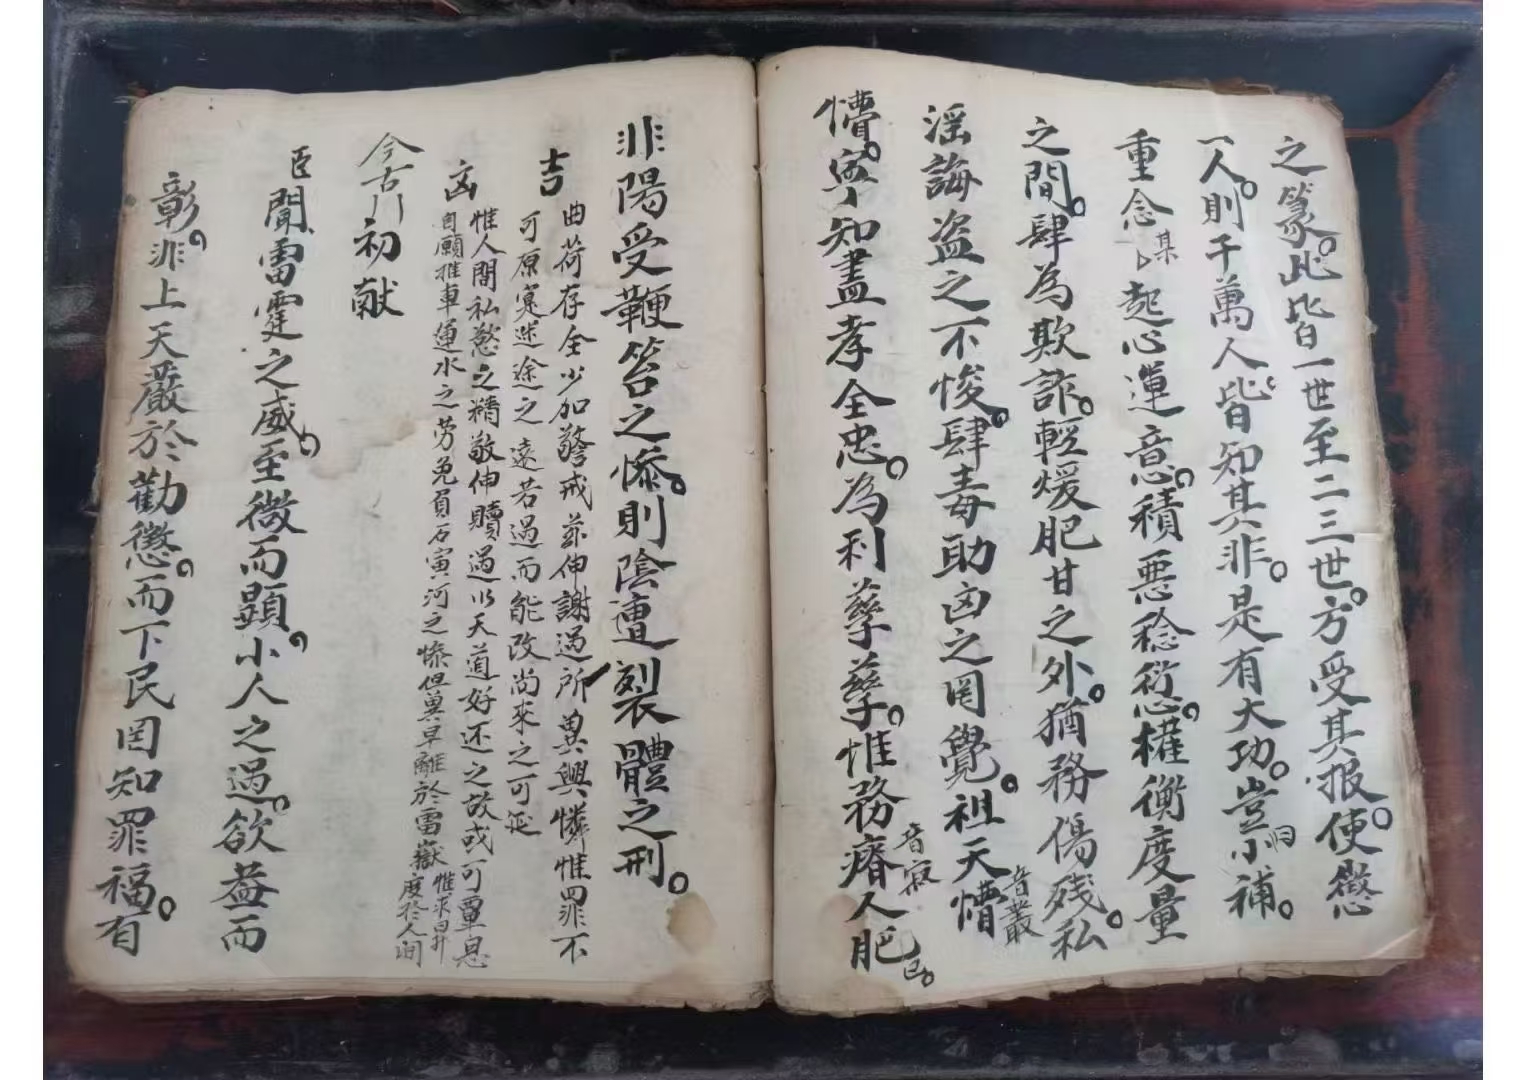 之篆此皆一世至二三世方受其报使懲
一人則千萬人皆知其非是有大功豈曰小補
重念某卩起心運意積悪稔愆權衡度量
之間肆為欺詐輕煖肥甘之外猶務傷残私
淫誨盗之不悛肆毒助凶之罔覺祖天懵
音叢
懵寜知盡孝全忠為利孳孳惟務瘠人肥己
音寂
非陽受鞭笞之慘則陰遭裂體之刑
吉
曲荷存全少加警戒茲伸謝過所兾興憐惟罪不
可原寔迷途之遠若過而能改尚來之可延
凶
惟人間私慾之精敬伸贖過以天道好还之故或可重息
自願推車運水之劳免負石寅河之慘但兾早離於雷嶽惟求日升
度於人间
今古川初献
臣聞雷霆之威至微而顯小人之過欲盖而
彰非上天嚴於勸懲而下民罔知罪福有